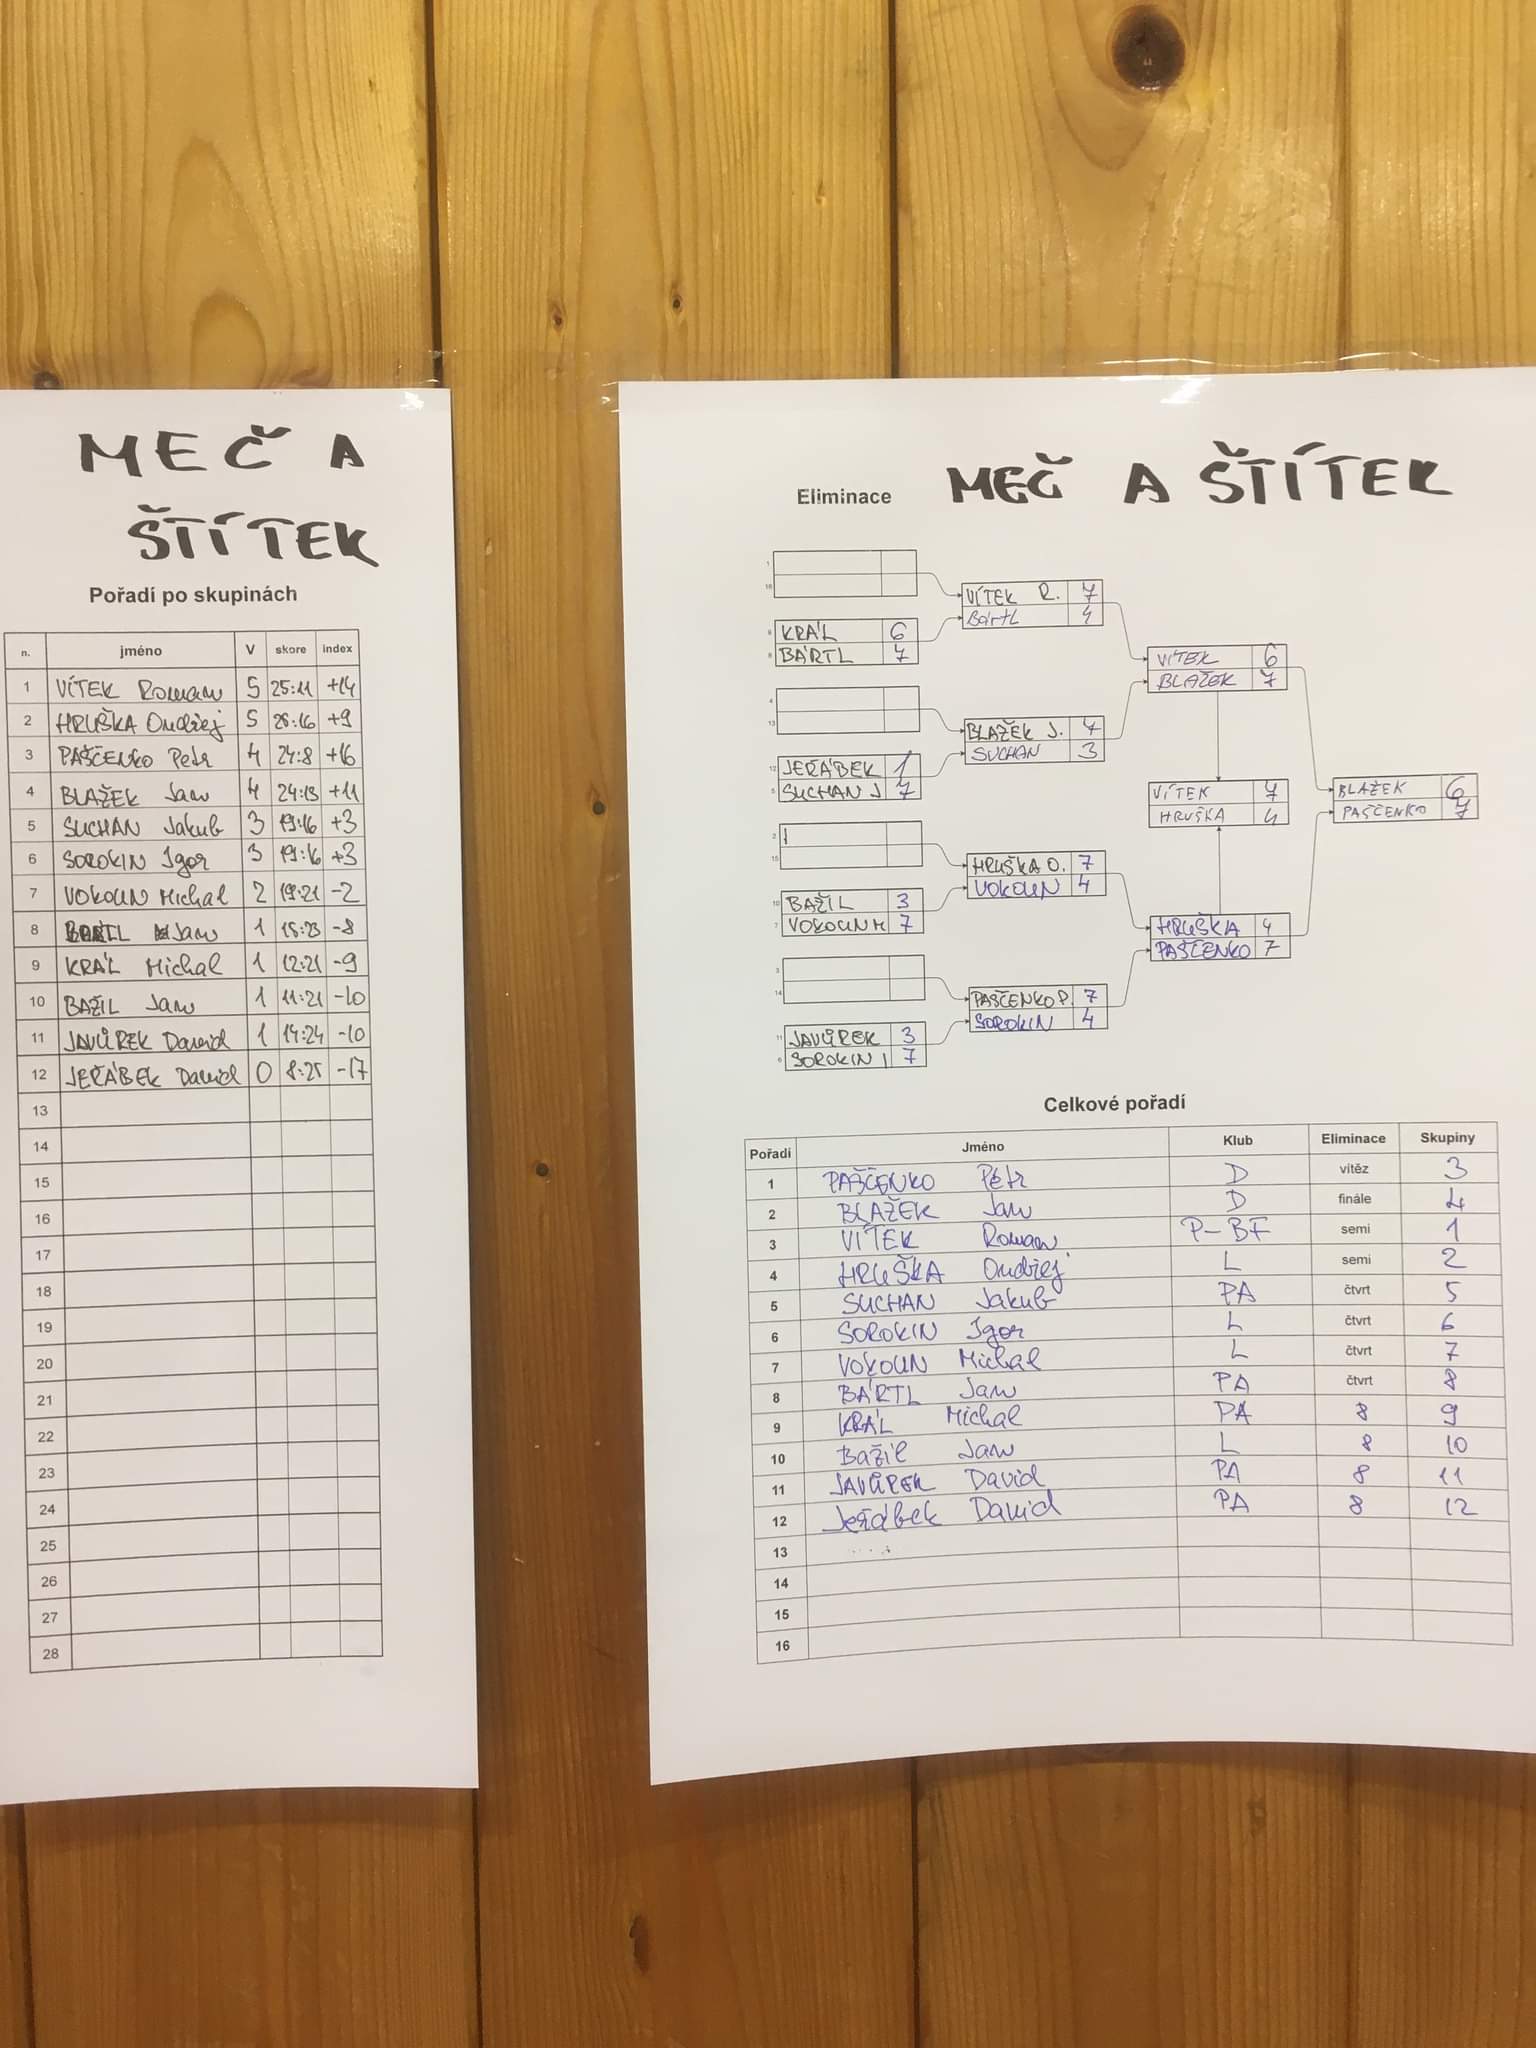 MEČ A
ŠTÍTEK
Pořadí po skupinách
n. jméno V skore index
1 VÍTEK Roman 5 25:11 +14
2 HRUŠKA Ondřej 5 25:16 +9
3 PAŠČENKO Petr 4 24:8 +16
4 BLAŽEK Jan 4 24:13 +11
5 SUCHAN Jakub 3 19:16 +3
6 SOROKIN Igor 3 19:16 +3
7 VOKOUN Michal 2 19:21 -2
8 BARTL Jan 1 15:23 -8
9 KRÁL Michal 1 12:21 -9
10 BAŽIL Jan 1 11:21 -10
11 JAVŮREK David 1 14:24 -10
12 JEŘÁBEK David 0 8:25 -17
13
14
15
16
17
18
19
20
21
22
23
24
25
26
27
28
Eliminace MEČ A ŠTÍTEK
1
16
9 KRÁL 6
8 BÁRTL 7
4
13
12 JEŘÁBEK 1
5 SUCHAN J 7
2
15
10 BAŽIL 3
7 VOKOUN M 7
3
14
11 JAVŮREK 3
6 SOROKIN I 7
VÍTEK R. 7
Bártl 4
BLAŽEK J. 4
SUCHAN 3
HRUŠKA O. 7
VOKOUN 4
PAŠČENKO P. 7
SOROKIN 4
VÍTEK 6
BLAŽEK 7
VÍTEK 7
HRUŠKA 4
HRUŠKA 4
PAŠČENKO 7
BLAŽEK 6
PAŠČENKO 7
Celkové pořadí
Pořadí Jméno Klub Eliminace Skupiny
1 PAŠČENKO Petr D vítěz 3
2 BLAŽEK Jan D finále 4
3 VÍTEK Roman P-BF semi 1
4 HRUŠKA Ondřej L semi 2
5 SUCHAN Jakub PA čtvrt 5
6 SOROKIN Igor L čtvrt 6
7 VOKOUN Michal L čtvrt 7
8 BÁRTL Jan PA čtvrt 8
9 KRÁL Michal PA 8 9
10 Bažil Jan L 8 10
11 JAVŮREK David PA 8 11
12 Jeřábek David PA 8 12
13
14
15
16